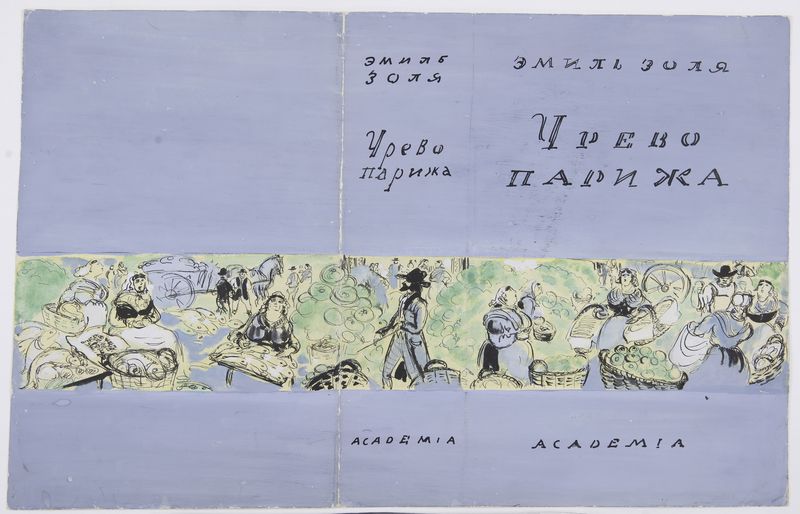 ЭМИЛЬ
ЗОЛЯ
Чрево
парижа
ACADEMIA
ЭМИЛЬ ЗОЛЯ
ЧРЕВО
ПАРИЖА
ACADEMIA